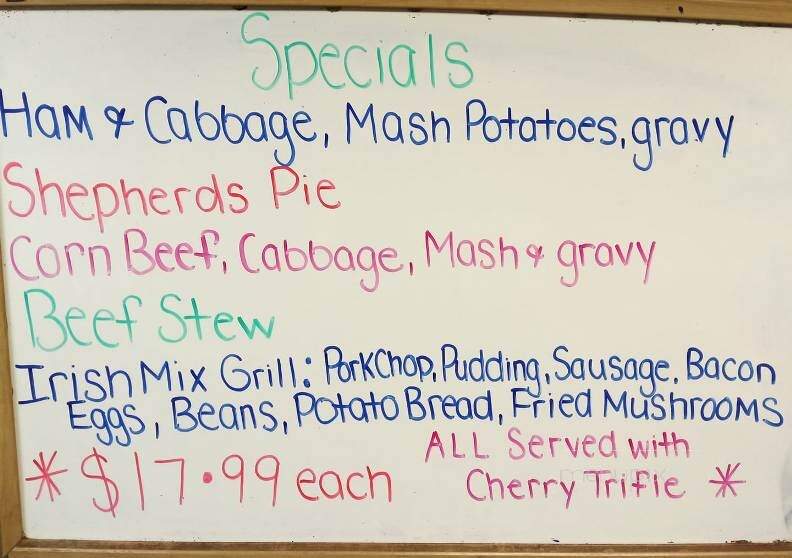 Specials
Ham & Cabbage, Mash Potatoes, gravy
Shepherds Pie
Corn Beef, Cabbage, Mash & gravy
Beef Stew
Irish Mix Grill: Pork Chop, Pudding, Sausage, Bacon
Eggs, Beans, Potato Bread, Fried Mushrooms
* $17.99 each
ALL Served with
Cherry Trifle *